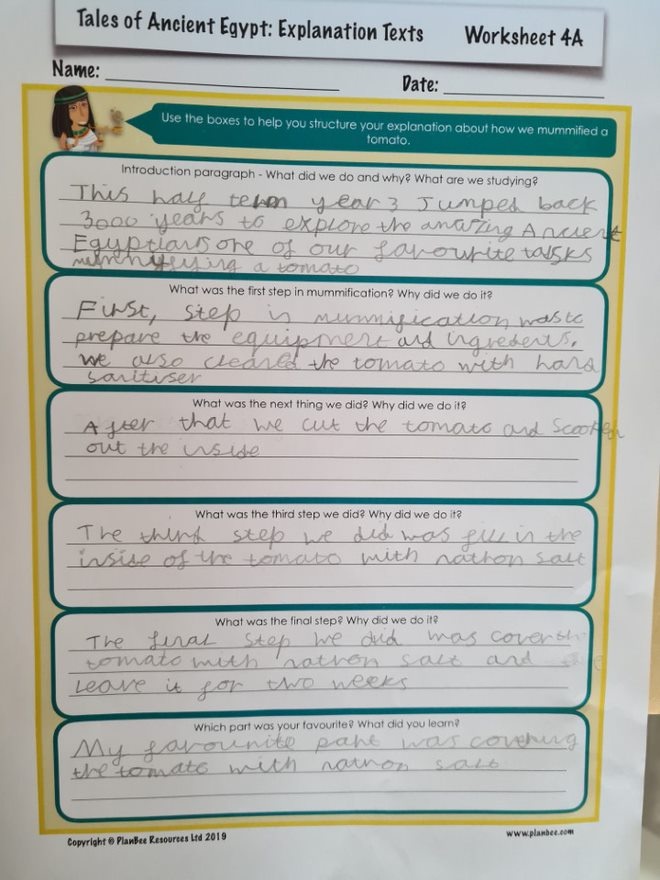 Tales of Ancient Egypt: Explanation Texts Worksheet 4A
Name: Date:
Use the boxes to help you structure your explanation about how we mummified a
tomato.
Introduction paragraph - What did we do and why? What are we studying?
This half term year 3 Jumped back
3000 years to explore the amazing Ancient
Egyptians one of our favourite tasks
mummifying a tomato
What was the first step in mummification? Why did we do it?
First, step in mummification was to
prepare the equipment and ingredients,
we also cleaned the tomato with hand
sanitiser
What was the next thing we did? Why did we do it?
After that we cut the tomato and scooped
out the inside
What was the third step we did? Why did we do it?
The third step we did was fill in the
inside of the tomato with natron salt
What was the final step? Why did we do it?
The final step we did was cover the
tomato with natron salt and
leave it for two weeks
Which part was your favourite? What did you learn?
My favourite part was covering
the tomato with natron salt
Copyright © PlanBee Resources Ltd 2019 www.planbee.com